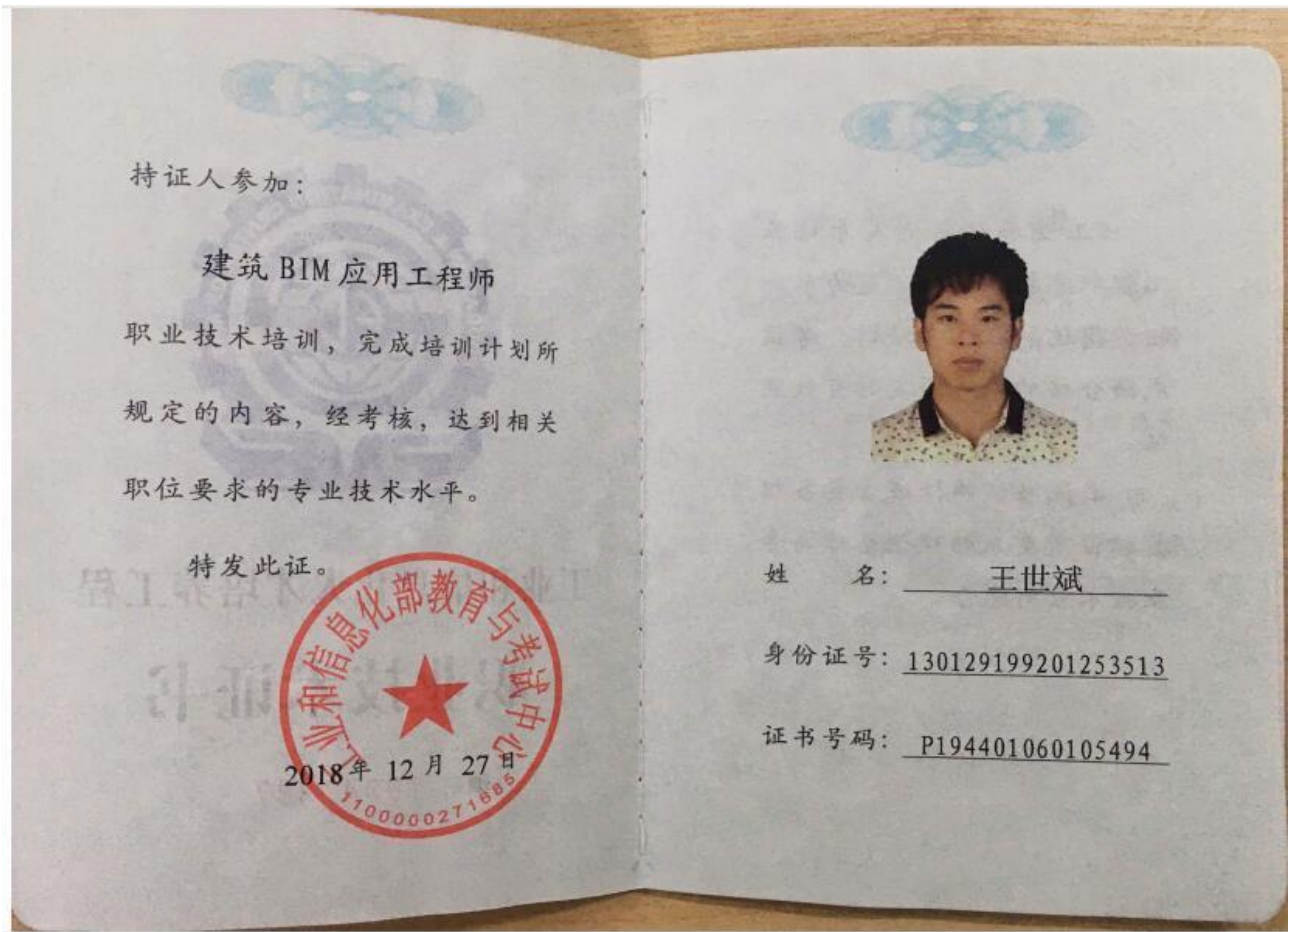 持证人参加：
建筑 BIM 应用工程师
职业技术培训，完成培训计划所
规定的内容，经考核，达到相关
职位要求的专业技术水平。
特发此证。
工业和信息化部教育与考试中心
2018年 12月 27日
1100000271685
姓 名：王世斌
身份证号：130129199201253513
证书号码：P194401060105494